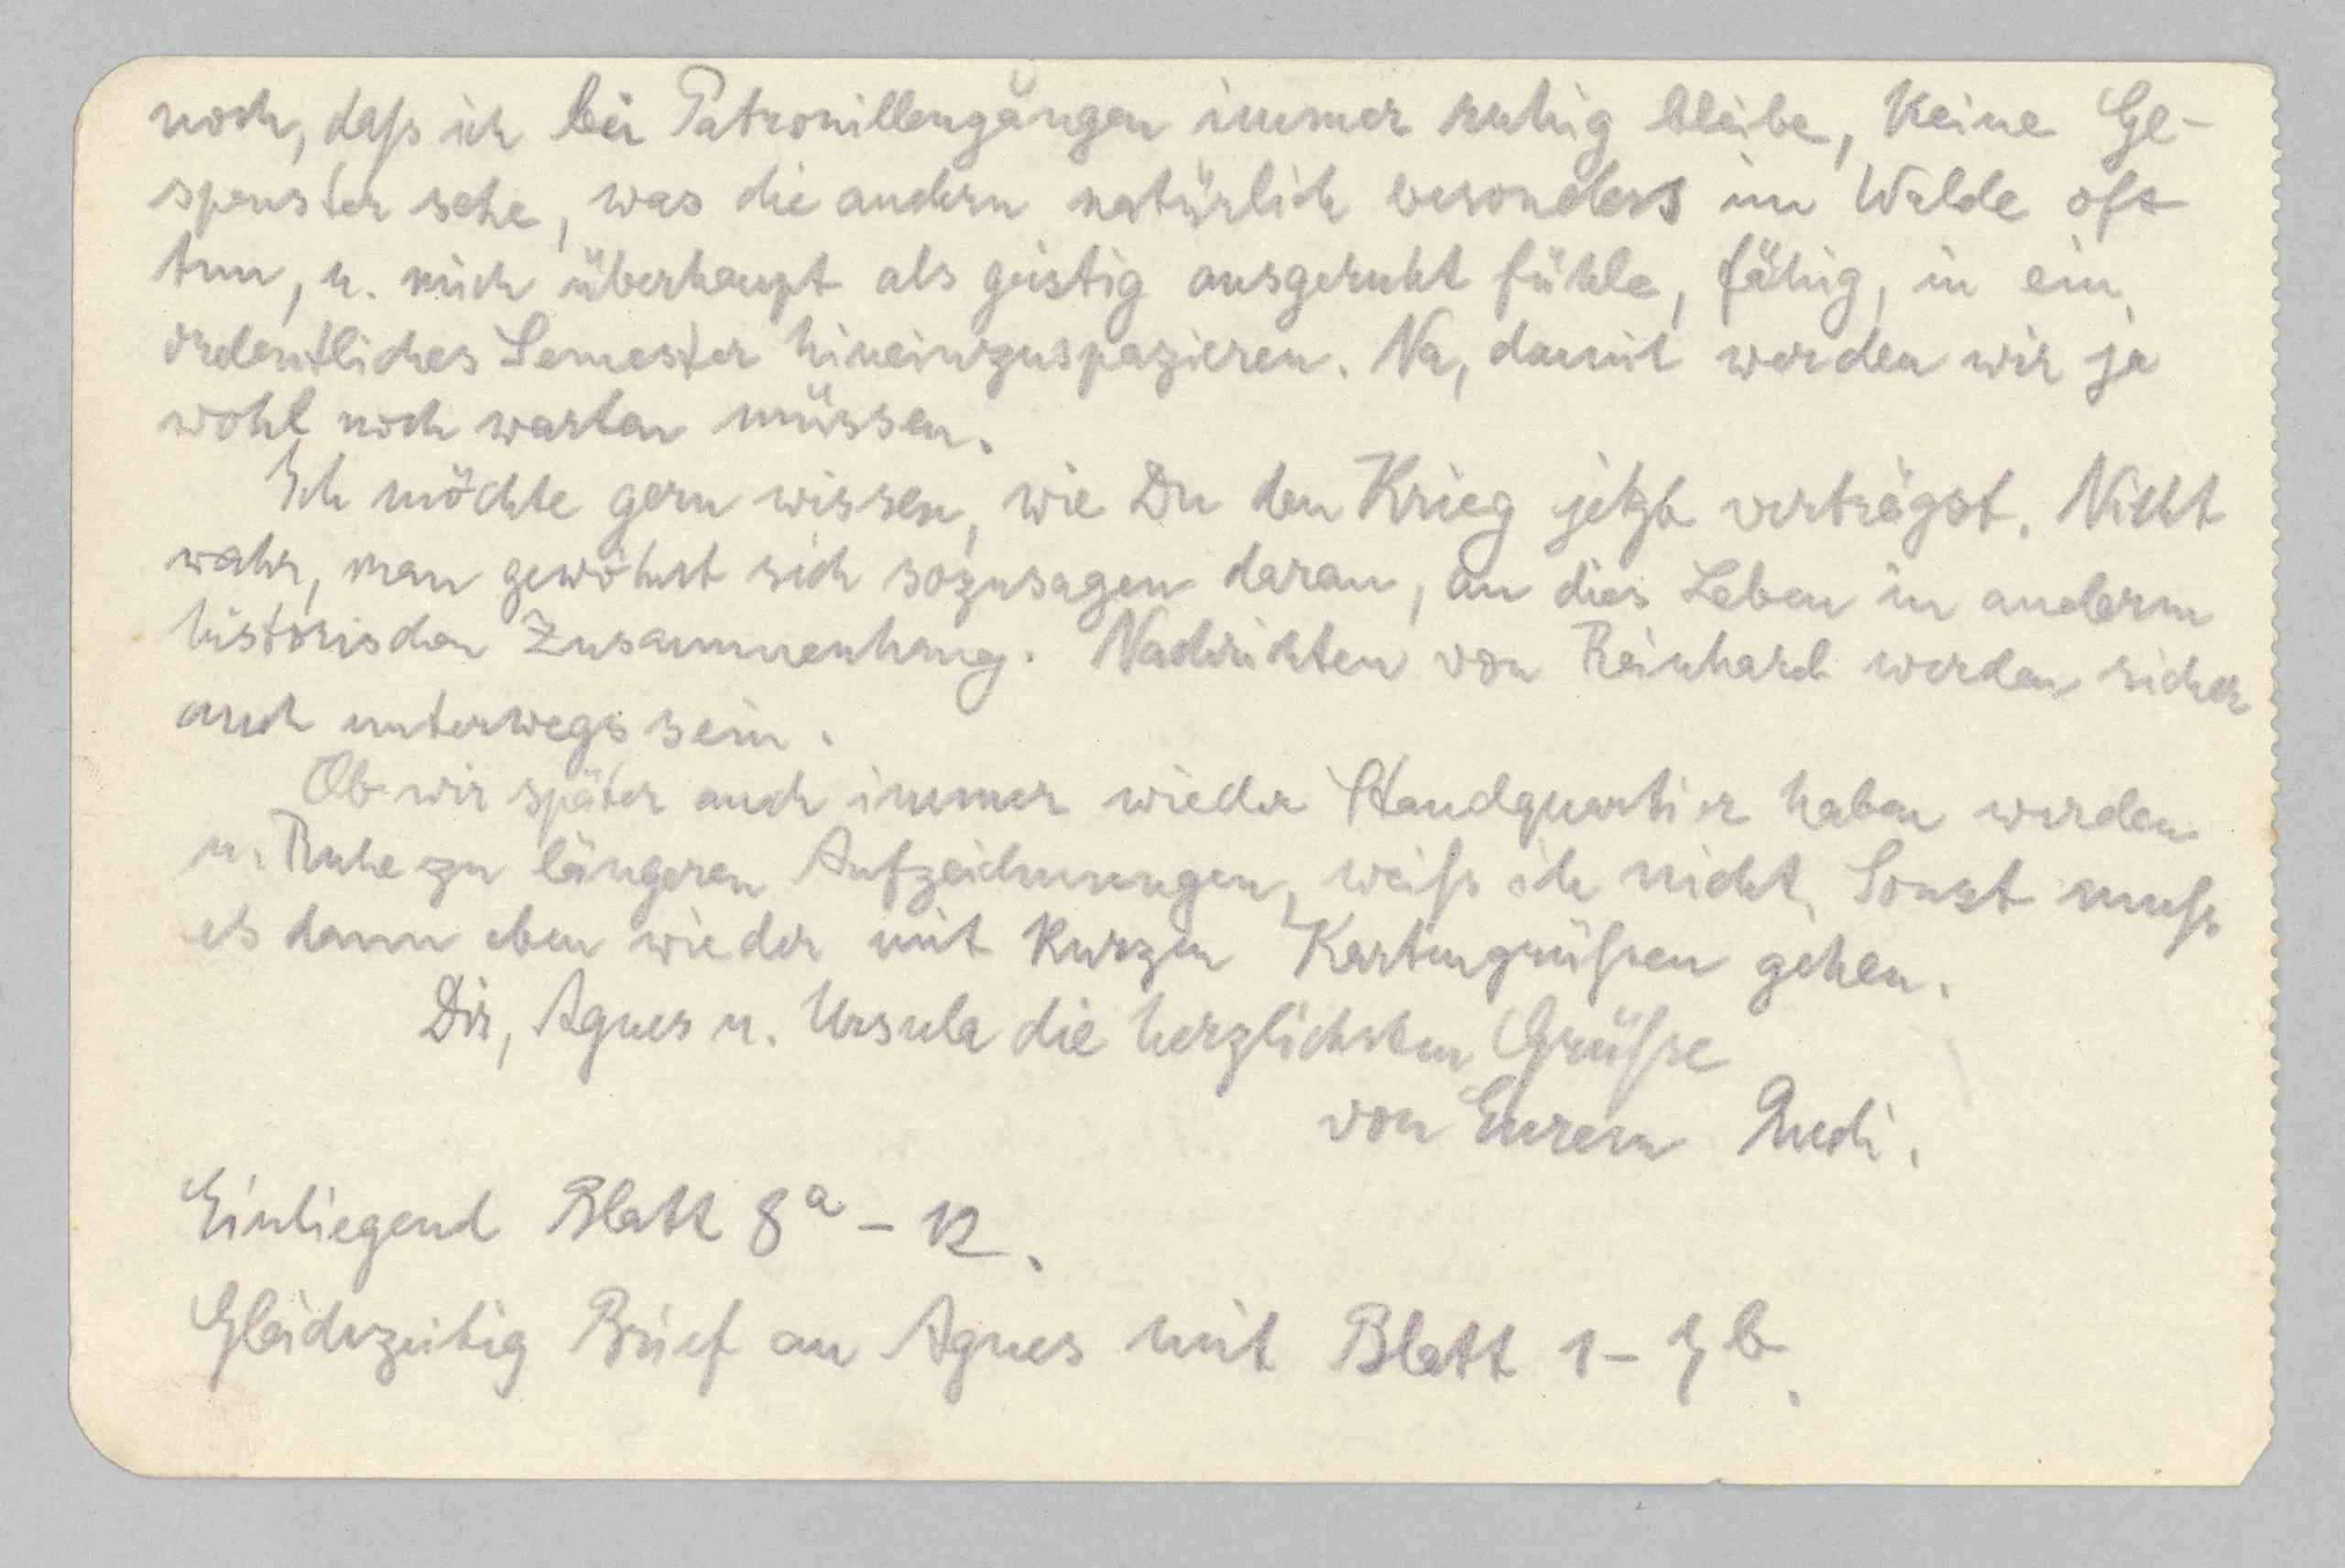 noch, daß ich bei Patrouillengängen immer ruhig bleibe, keine Ge-
spenster sehe, was die andern natürlich besonders im Walde oft
tun, u. mich überhaupt als geistig ausgeruht fühle, fähig, in ein
ordentliches Semester hineinzuspazieren. Na, damit werden wir ja
wohl noch warten müssen.
Ich möchte gern wissen, wie Du den Krieg jetzt verträgst. Nicht
wahr, man gewöhnt sich sozusagen daran, an dies Leben in anderm
historischen Zusammenhang. Nachrichten von Reinhard werden sicher
auch unterwegs sein.
Ob wir später auch immer wieder Standquartier haben werden
u. Ruhe zu längeren Aufzeichnungen, weiß ich nicht. Sonst muß
es dann eben wieder mit kurzen Kartengrüßen gehen.
Dir, Agnes u. Ursula die herzlichsten Grüße
von Eurem Rudi.
Einliegend Blatt 8a – 12.
Gleichzeitig Brief an Agnes mit Blatt 1 – 7b.